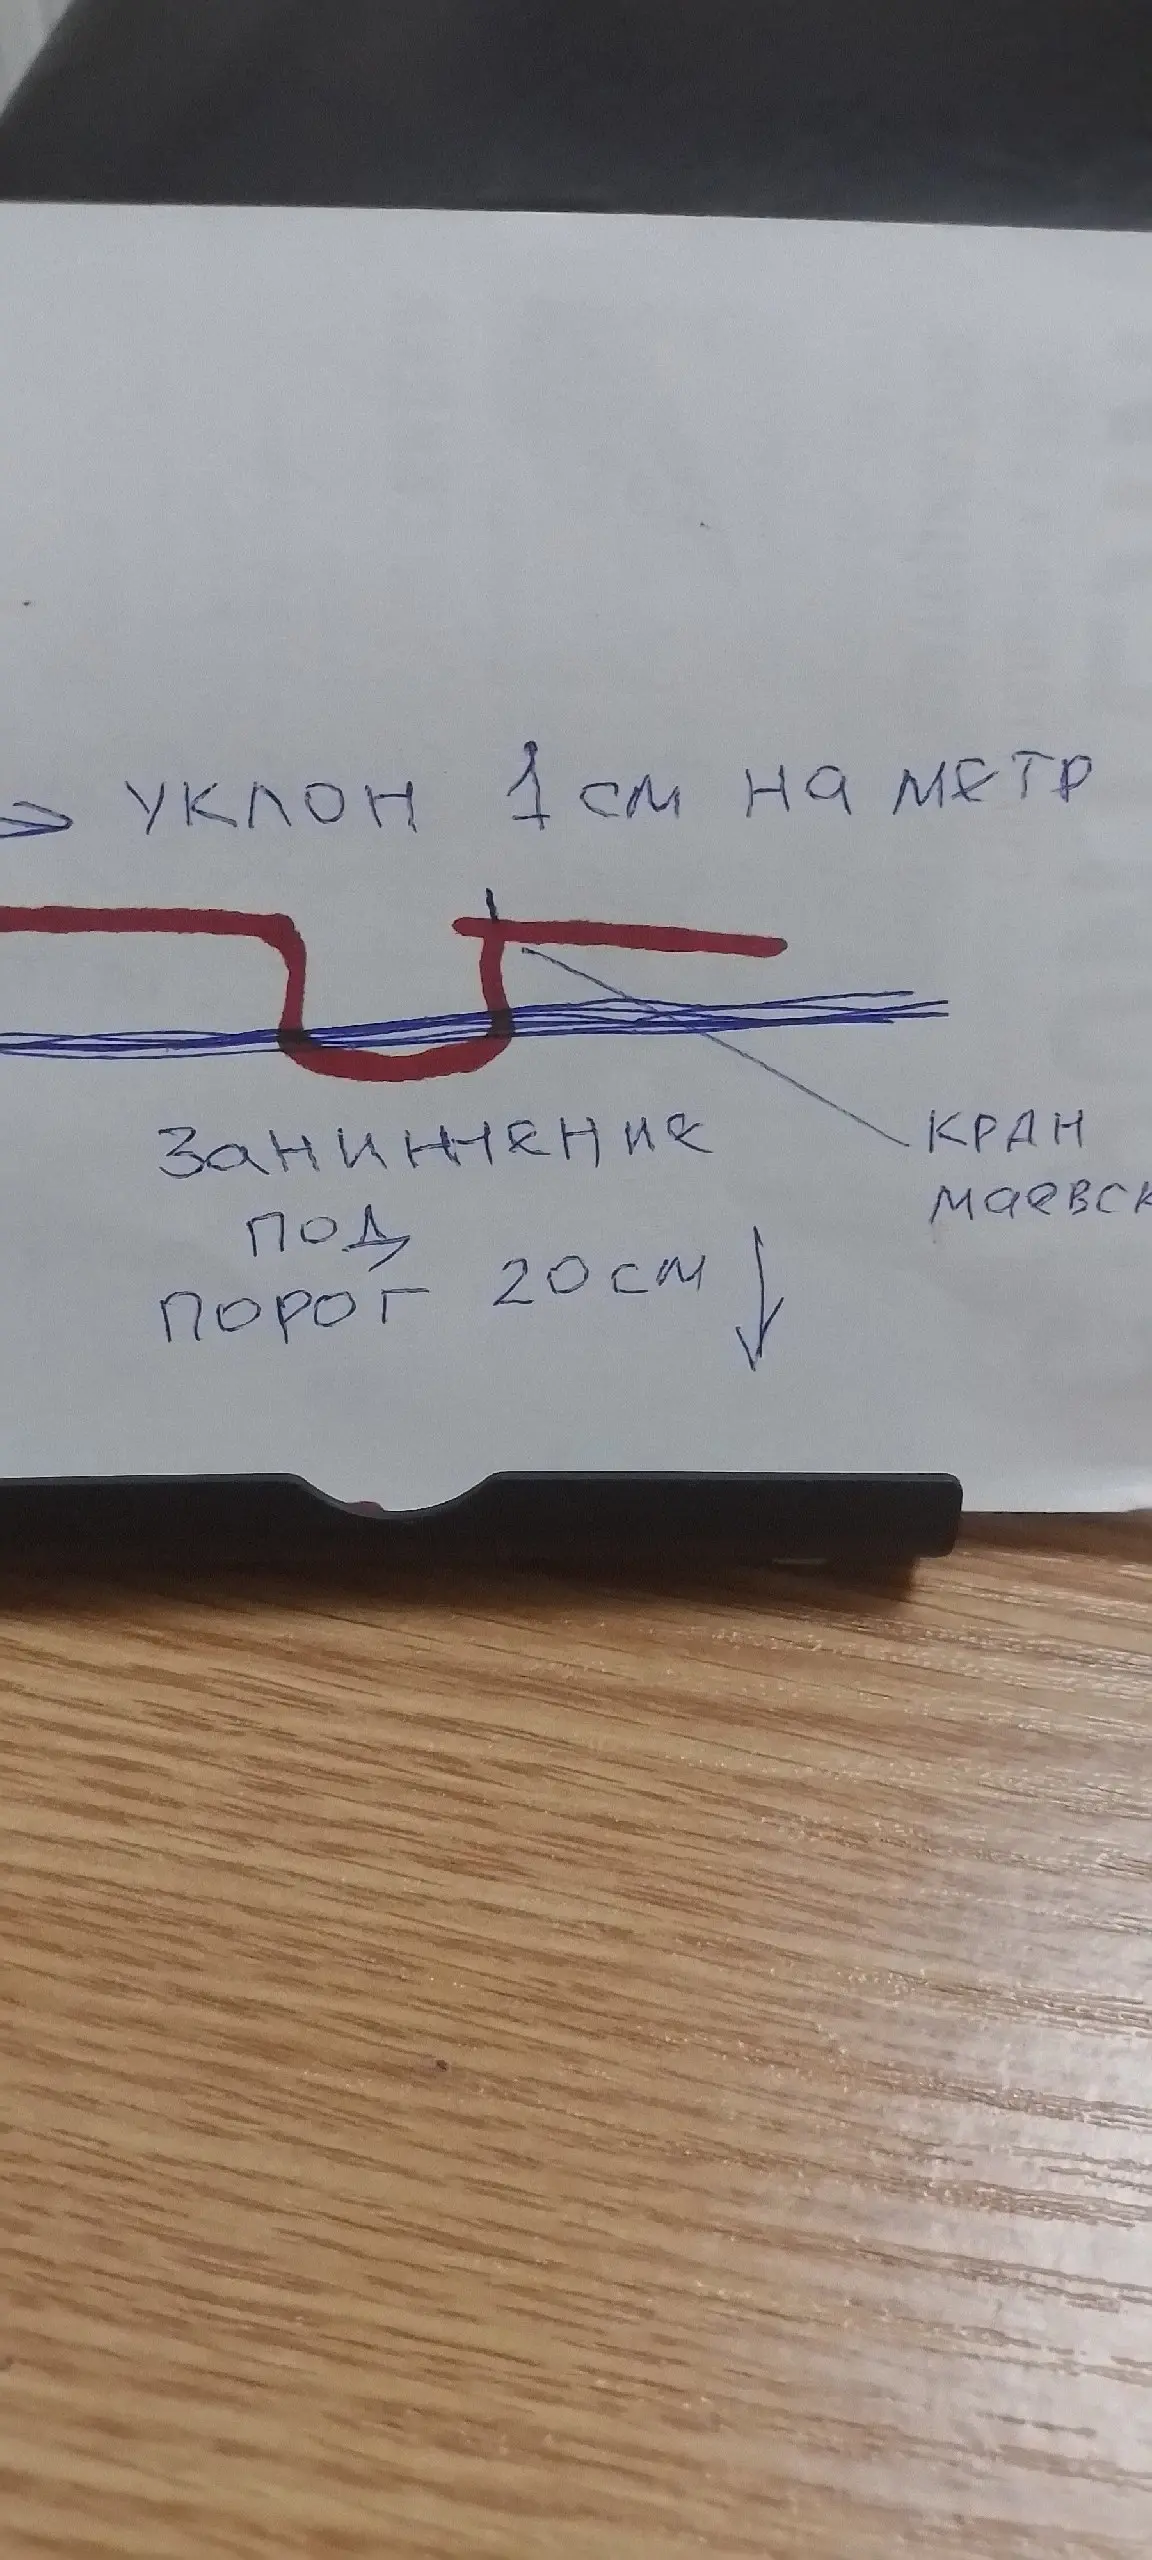 УКЛОН 1 см НА МЕТР
ЗАНИЖЕНИЕ
ПОД
ПОРОГ 20 см
КРАН
МАЕВСК